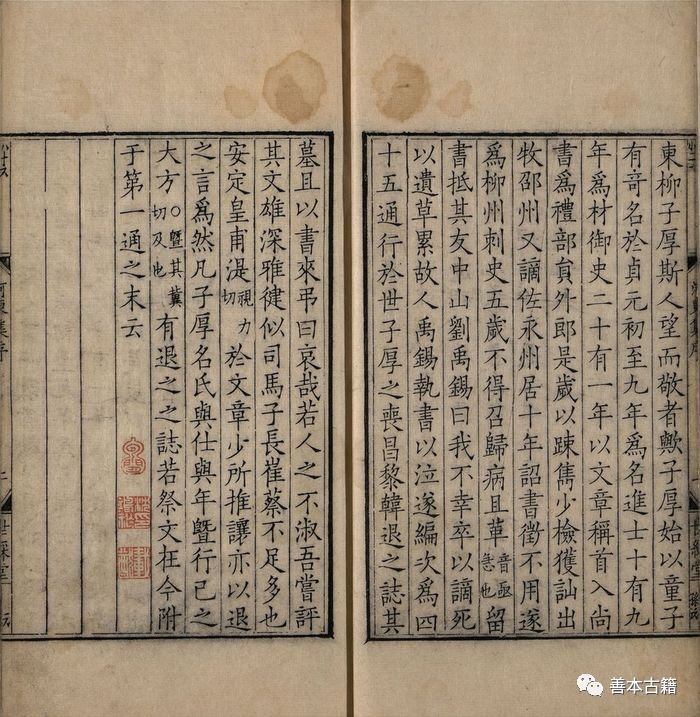 東柳子厚斯人望而敬者歟子厚始以童子
有奇名於貞元初至九年爲名進士十有九
年爲材御史二十有一年以文章稱首入尚
書爲禮部貟外郎是歲以踈雋少檢獲訕出
牧邵州又謫佐永州居十年詔書徵不用遂
爲柳州刺史五歲不得召歸病且革音亟急也留
書抵其友中山劉禹錫曰我不幸卒以謫死
以遺草累故人禹錫執書以泣遂編次爲四
十五通行於世子厚之喪昌黎韓退之誌其
墓且以書來弔曰哀哉若人之不淑吾嘗評
其文雄深雅健似司馬子長崔蔡不足多也
安定皇甫湜視力切於文章少所推讓亦以退
之言爲然凡子厚名氏與仕與年曁行己之
大方○曁其冀切及也有退之之誌若祭文在今附
于第一通之末云
世綵堂
善本古籍